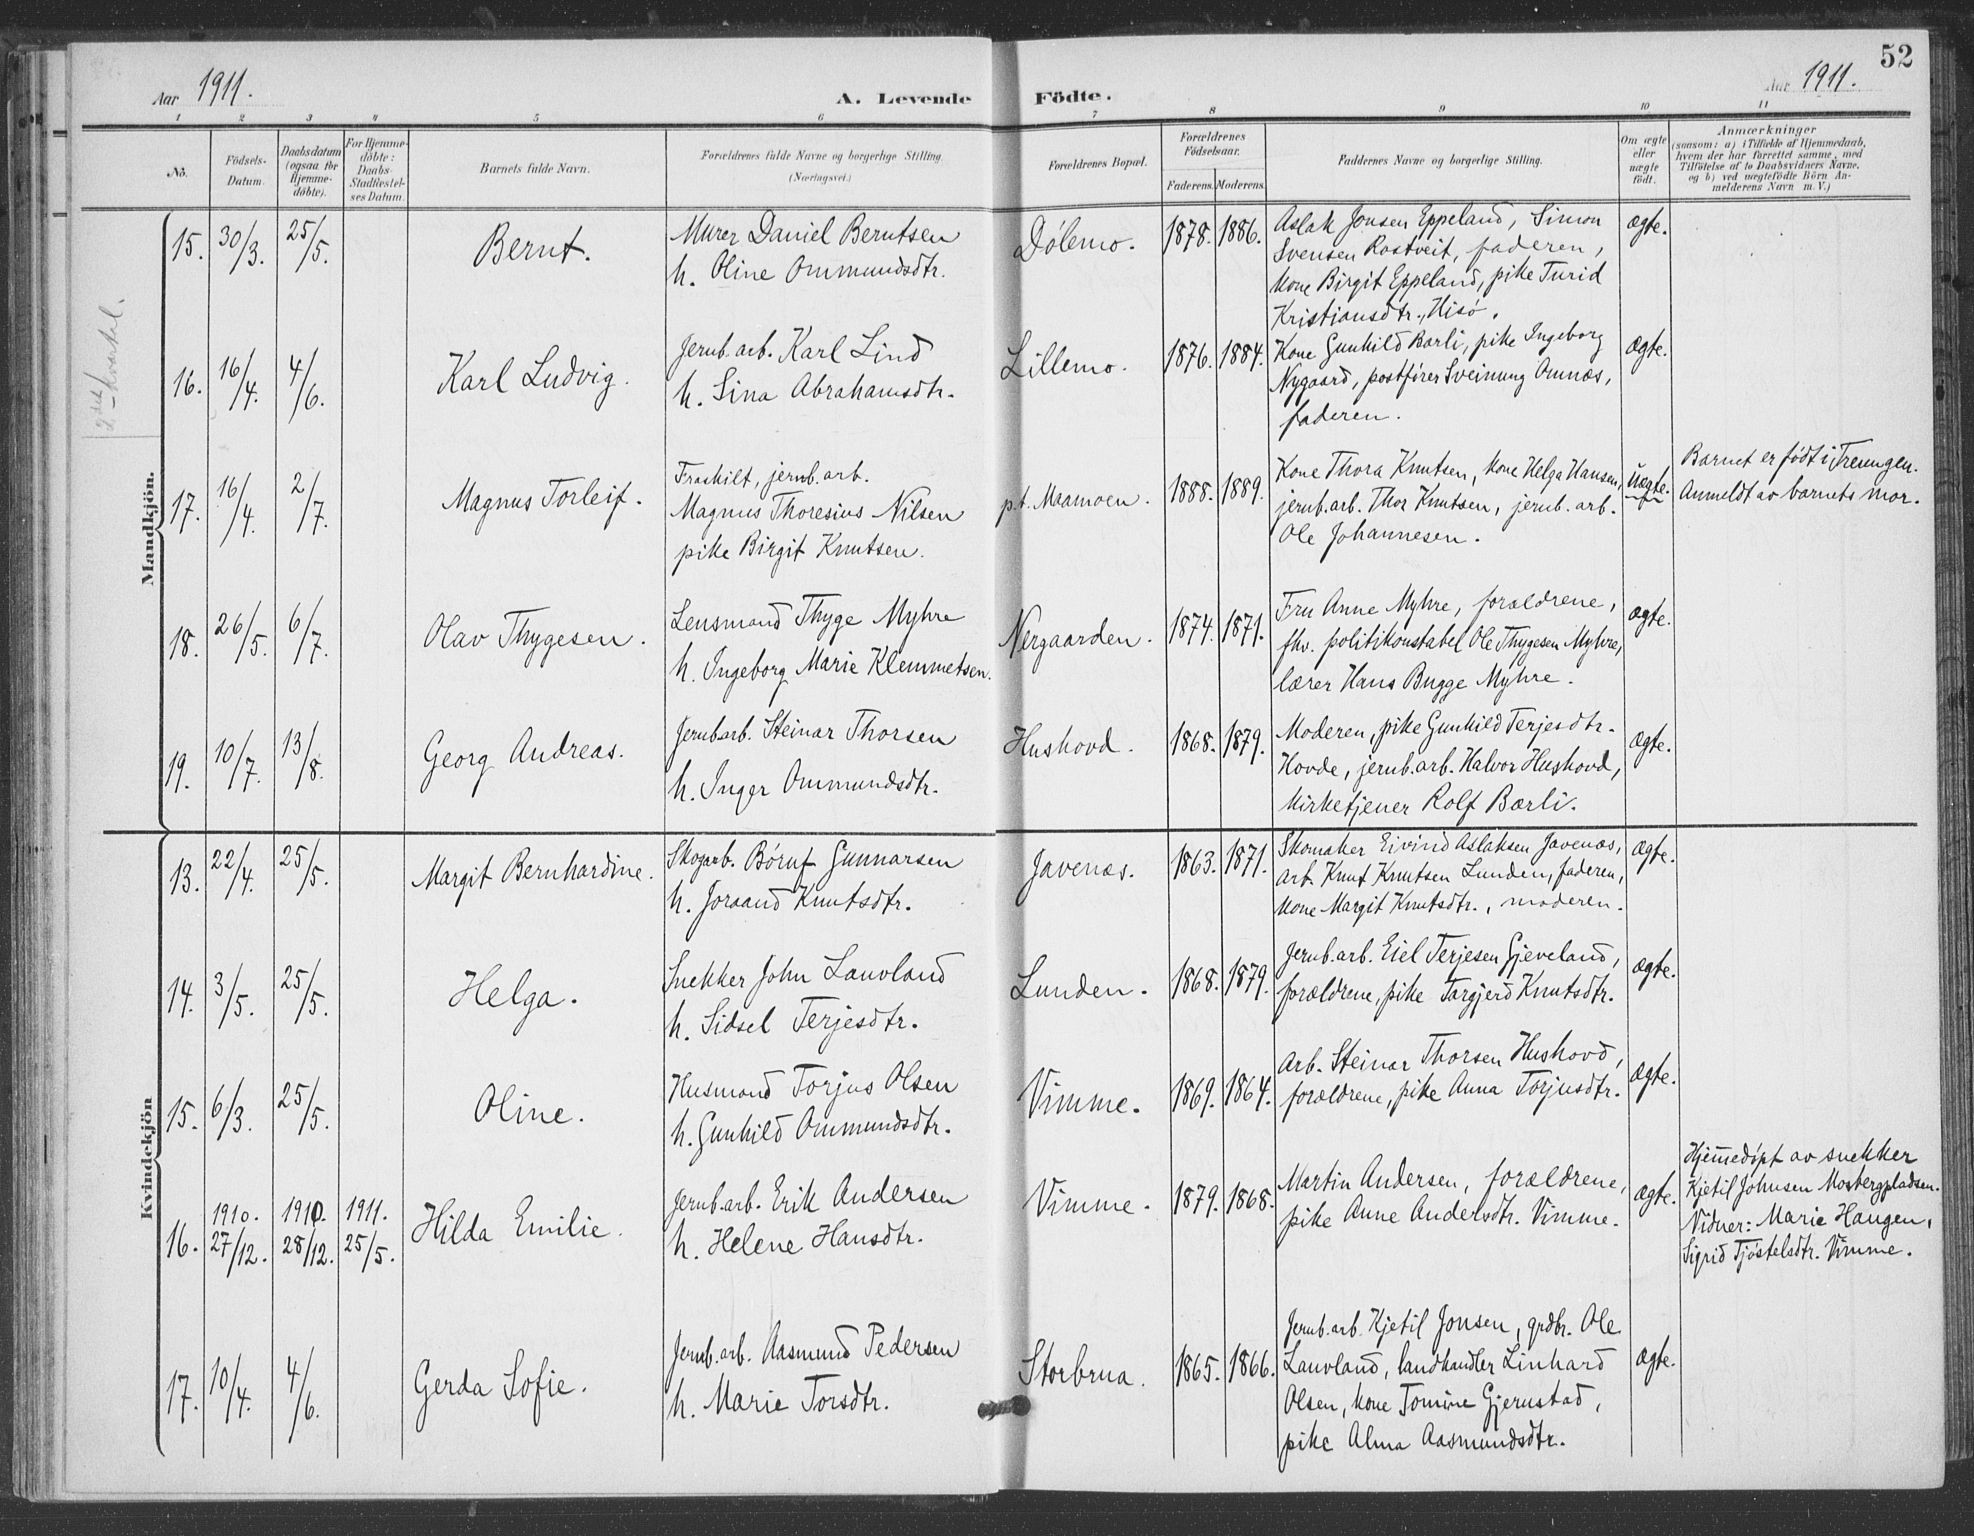 52
Aar 1911.
A. Levende Födte.
Aar 1911.
1 2 3 4 5 6 7 8 9 10 11
No.
Födsels-Datum.
Daabsdatum (ogsaa for Hjemme-döbte).
For Hjemme-döbte: Daabs-Stadfæstel-ses Datum.
Barnets fulde Navn.
Forældrenes fulde Navne og borgerlige Stilling.
(Næringsvei.)
Forældrenes Bopæl.
Forældrenes Födselsaar.
Faderens. Moderens.
Faddernes Navne og borgerlige Stilling.
Om ægte eller uægte födt.
Anmærkninger
(saasom: a) i Tilfælde af Hjemmedaab,
hvem der har forrettet samme, med
Tilföielse af to Daabsvidners Navne,
og b) ved uægtefödte Börn An-
melderens Navn m. V.)
2det kvartal.
Mandkjön.
15. 30/3. 25/5. Bernt. Murer Daniel Berntsen
h. Oline Ommundsdtr.
Dølemo. 1878. 1886. Aslak Jonsen Eppeland, Simon
Svensen Rostveit, faderen,
kone Birgit Eppeland, pike Turid
Kristiansdtr., Hisø.
ægte.
16. 16/4. 4/6. Karl Ludvig. Jernb.arb. Karl Lind
h. Sina Abrahamsdtr.
Lillemo. 1876. 1884. Kone Gunhild Bærli, pike Ingeborg
Nygaard, postfører Sveinung Omnæs,
faderen.
ægte.
17. 16/4. 2/7. Magnus Torleif. Fraskilt, jernb.arb.
Magnus Thoresius Nilsen
pike Birgit Knutsen.
p.t. Maamoen. 1888. 1889. Kone Thora Knutsen, kone Helga Hansen,
jernb.arb. Thor Knutsen, jernb.arb.
Ole Johannesen.
Uægte.
Barnet er født i Treungen.
Anmeldt av barnets mor.
18. 26/5. 6/7. Olav Thygesen. Lensmand Thyge Myhre
h. Ingeborg Marie Klemmetsen.
Nergaarden. 1874. 1871. Fru Anne Myhre, forældrene,
fhv. politikonstabel Ole Thygesen Myhre,
lærer Hans Bugge Myhre.
ægte.
19. 10/7. 13/8. Georg Andreas. Jernb.arb. Steinar Thorsen
h. Inger Ommundsdtr.
Hushovd. 1868. 1879. Moderen, pike Gunhild Terjesdtr.
Hovde, jernb.arb. Halvor Hushovd,
kirketjener Rolf Bærli.
ægte.
Kvindekjön
13. 22/4. 25/5. Margit Bernhardine. Skogarb. Børuf Gunnarsen
h. Joraand Knutsdtr.
Javenæs. 1863. 1871. Skomaker Eivind Aslaksen Javenæs,
arb. Knut Knutsen Lunden, faderen,
kone Margit Knutsdtr., moderen.
ægte.
14. 3/5. 25/5. Helga. Snekker John Lauvland
h. Sidsel Terjesdtr.
Lunden. 1868. 1879. Jernb.arb. Eiel Terjesen Gjeveland,
forældrene, pike Targjerd Knutsdtr.
ægte.
15. 6/3. 25/5. Oline. Husmand Torjus Olsen
h. Gunhild Ommundsdtr.
Vimme. 1869. 1864. Arb. Steinar Thorsen Hushovd,
forældrene, pike Anna Torjusdtr.
ægte.
16. 1910. 27/12. 1910. 28/12. 1911. 25/5. Hilda Emilie. Jernb.arb. Erik Andersen
h. Helene Hansdtr.
Vimme. 1879. 1868. Martin Andersen, forældrene,
pike Anne Andersdtr. Vimme.
ægte.
Hjemmedøpt av snekker
Kjetil Johnsen Mosbergpladsen.
Vidner: Marie Haugen,
Sigrid Tjøstelsdtr. Vimme.
17. 10/4. 4/6. Gerda Sofie. Jernb.arb. Aasmund Pedersen
h. Marie Torsdtr.
Storbrua. 1865. 1866. Jernb.arb. Kjetil Jonsen, grdbr. Ole
Lauvland, landhandler Linhard
Olsen, kone Tomine Gjernstad,
pike Alma Aasmundsdtr.
ægte.